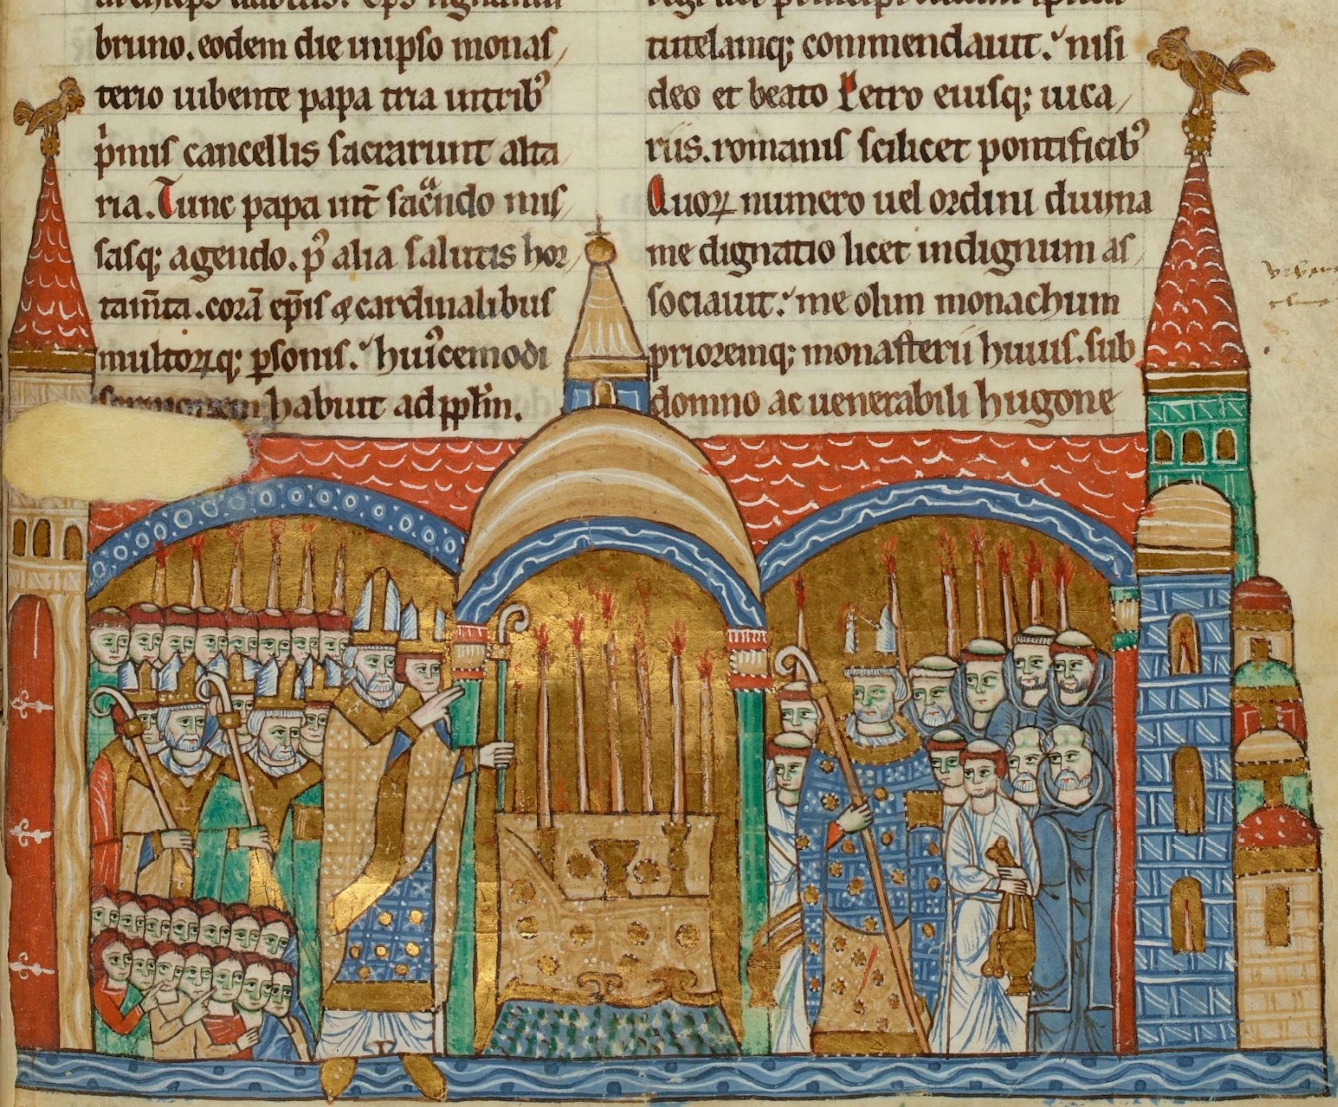 bruno. eodem die in ipso monas/
terio iubente papa tria in trib᷒
p̍mis cancellis sacrarunt alta
ria. Tunc papa int̄ sac̄ndo mis/
sasq; agendo. p᷒ alia salutis hor/
tam̄ta. corā ep̄is ⁊ cardinalibus
multorꝝq; ꝑsonis. huiꝰcemodi
sermonem habuit ad ppl̄m.
tutelamq; commendauit. nisi
deo et beato Petro eiusq; uica/
riis. romanis scilicet pontificib᷒
Quorꝝ numero uel ordini diuina
me dignatio licet indignum as/
sociauit. me olim monachum
prioremq; monasterii huius. sub
domno ac uenerabili hugone